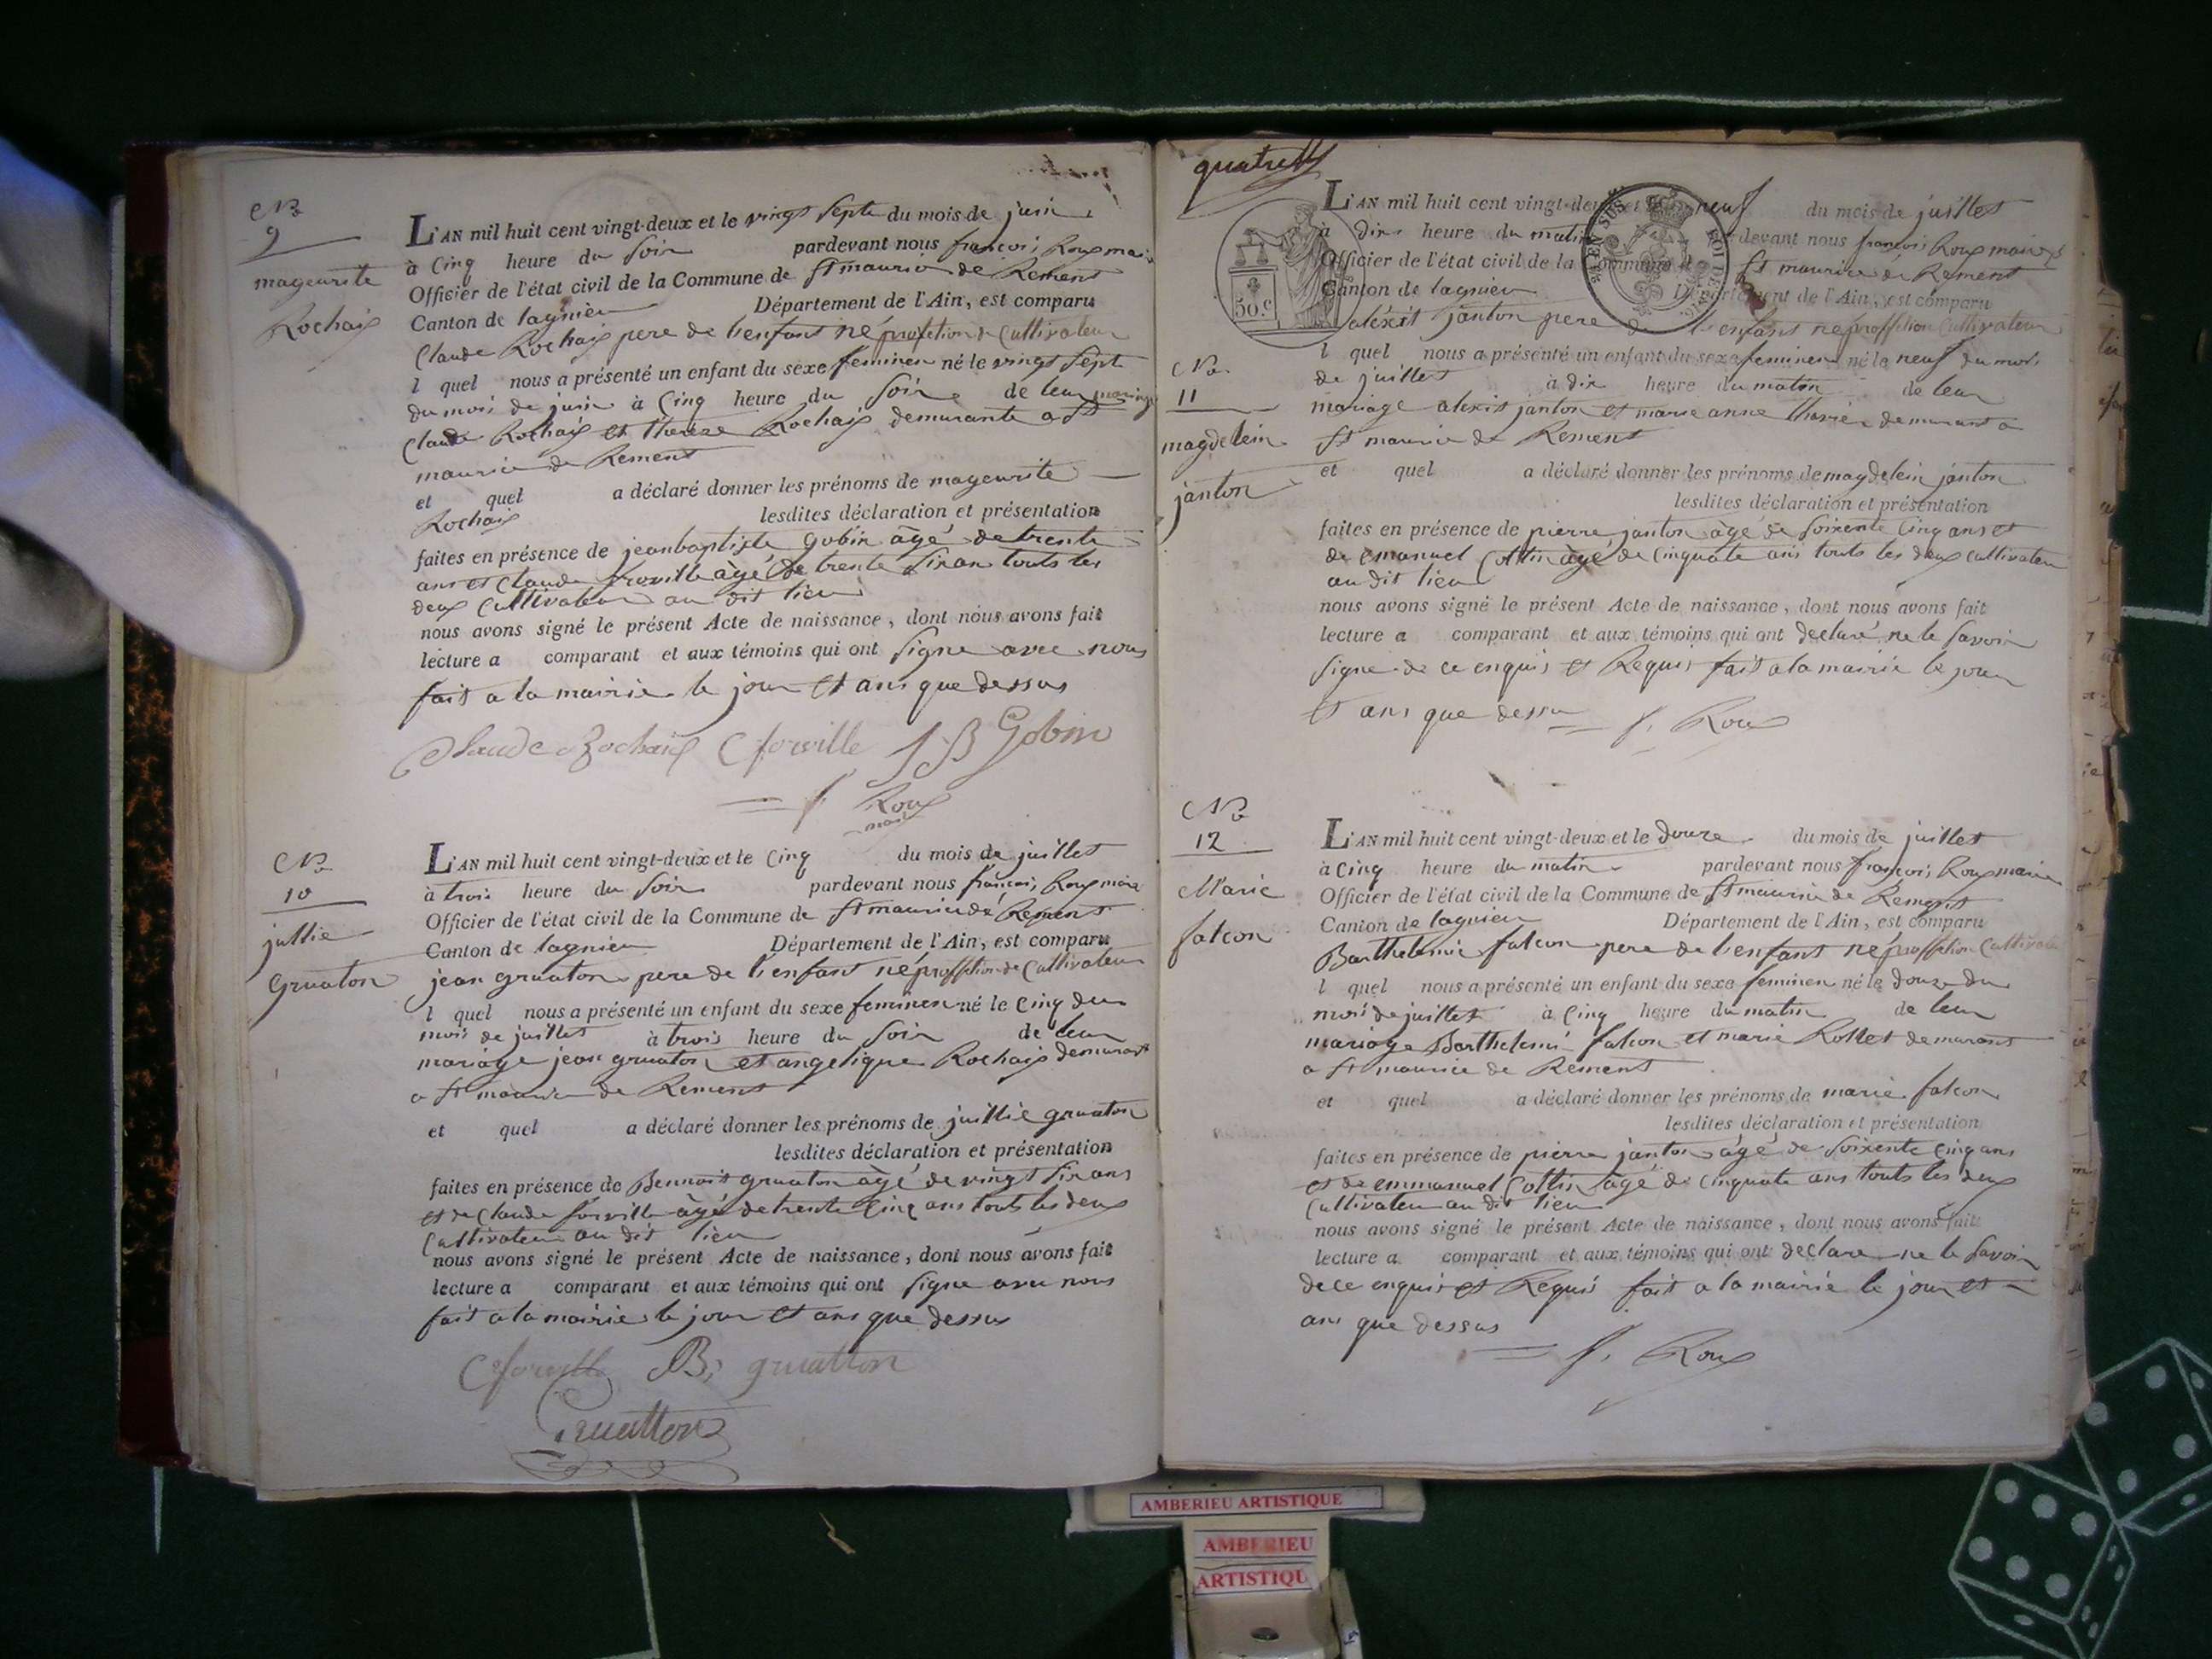 No
9
mageurite
Rochaix
L'AN mil huit cent vingt-deux et le vingt sept du mois de juin
à Cinq heure du soir pardevant nous francois Roux mair
Officier de l'état civil de la Commune de st maurice de Rement
Canton de lagnieu Département de l'Ain, est comparu
Claude Rochaix pere de l'enfant né profetion de Cultivateur
l quel nous a présenté un enfant du sexe feminen né le vingt sept
du mois de juin à Cinq heure du soir de leur mariage
Claude Rochaix et therèze Rochaix demurante a st
maurice de Rement
et quel a déclaré donner les prénoms de mageurite
Rochaix lesdites déclaration et présentation
faites en présence de jeanbaptiste gobin âgé de trente
ans et Claude âgé de trente sixans touts les
deux Cultivateur au dit lieu
nous avons signé le présent Acte de naissance, dont nous avons fait
lecture a comparant et aux témoins qui ont signe avec nous
fait a la mairie le jour et ans que dessus
Claude Rochaix C forville J B Gobin
f. Roux
mair
No
10
jullie
gruaton
L'AN mil huit cent vingt-deux et le Cinq du mois de juillet
à trois heure du soir pardevant nous francois Roux maire
Officier de l'état civil de la Commune de st maurice de Rement
Canton de lagnieu Département de l'Ain, est comparu
jean gruaton pere de l'enfant né proffetion de Cultivateur
l quel nous a présenté un enfant du sexe feminen né le Cinq du
mois de juillet à trois heure du soir de leur
mariage jean gruaton et angelique Rochaix demurant
a st maurice de Rement
et quel a déclaré donner les prénoms de juillie gruaton
lesdites déclaration et présentation
faites en présence de Bennoit gruaton àgé de vingt sixans
et de Claude forville àgé de trente Cinq ans touts les deux
Cultivateur au dit lieu
nous avons signé le présent Acte de naissance, dont nous avons fait
lecture a comparant et aux témoins qui ont signe avec nous
fait a la mairie le jour et ans que dessus
C forville B; gruatton
Gruatton
quatre
50.c
L'AN mil huit cent vingt-deux et le neuf du mois de juillet
à dix heure du matin pardevant nous francois Roux maire
Officier de l'état civil de la Commune de st maurice de Rement
Canton de lagnieu Département de l'Ain, est comparu
aléxit janton pere de l'enfant né proffition Cultivateur
No
11
magdelein
janton
l quel nous a présenté un enfant du sexe feminen né le neuf du mois
de juillet à dix heure du matin de leur
mariage alexit janton et marie anne demurant a
st maurice de Rement
et quel a déclaré donner les prénoms de magdelein janton
lesdites déclaration et présentation
faites en présence de pierre janton àgé de soixente Cinq ans et
de emanuel Cottin àgé de Cinquate ans touts les deux Cultivateur
au dit lieu
nous avons signé le présent Acte de naissance, dont nous avons fait
lecture a comparant et aux témoins qui ont declaré ne le savoir
signe de ce enquis et Requis fait a la mairie le jour
et ans que dessu f. Roux
No
12
Marie
falcon
L'AN mil huit cent vingt-deux et le douze du mois de juillet
à Cinq heure du matin pardevant nous françois Roux maire
Officier de l'état civil de la Commune de st maurice de Rement
Canton de lagnieu Département de l'Ain, est comparu
Barthelemie falcon pere de l'enfant né proffetion Cultivate
l quel nous a présenté un enfant du sexe feminen né le douze du
mois de juillet à Cinq heure du matin de leur
mariage Barthelemi falcon et marie Rollet demurant
a st maurice de Rement
et quel a déclaré donner les prénoms de marie falcon
lesdites déclaration et présentation
faites en présence de pierre janton âgé de soixente Cinq ans
et de emmanuel Cottin àgé de Cinquate ans touts les deux
Cultivateur au dit lieu
nous avons signé le présent Acte de naissance, dont nous avons fait
lecture a comparant et aux témoins qui ont declare ne le savoir
de ce enquis et Requis fait a la mairie le jour et
ans que dessus
f. Roux
AMBERIEU ARTISTIQUE
AMBERIEU
ARTISTIQU